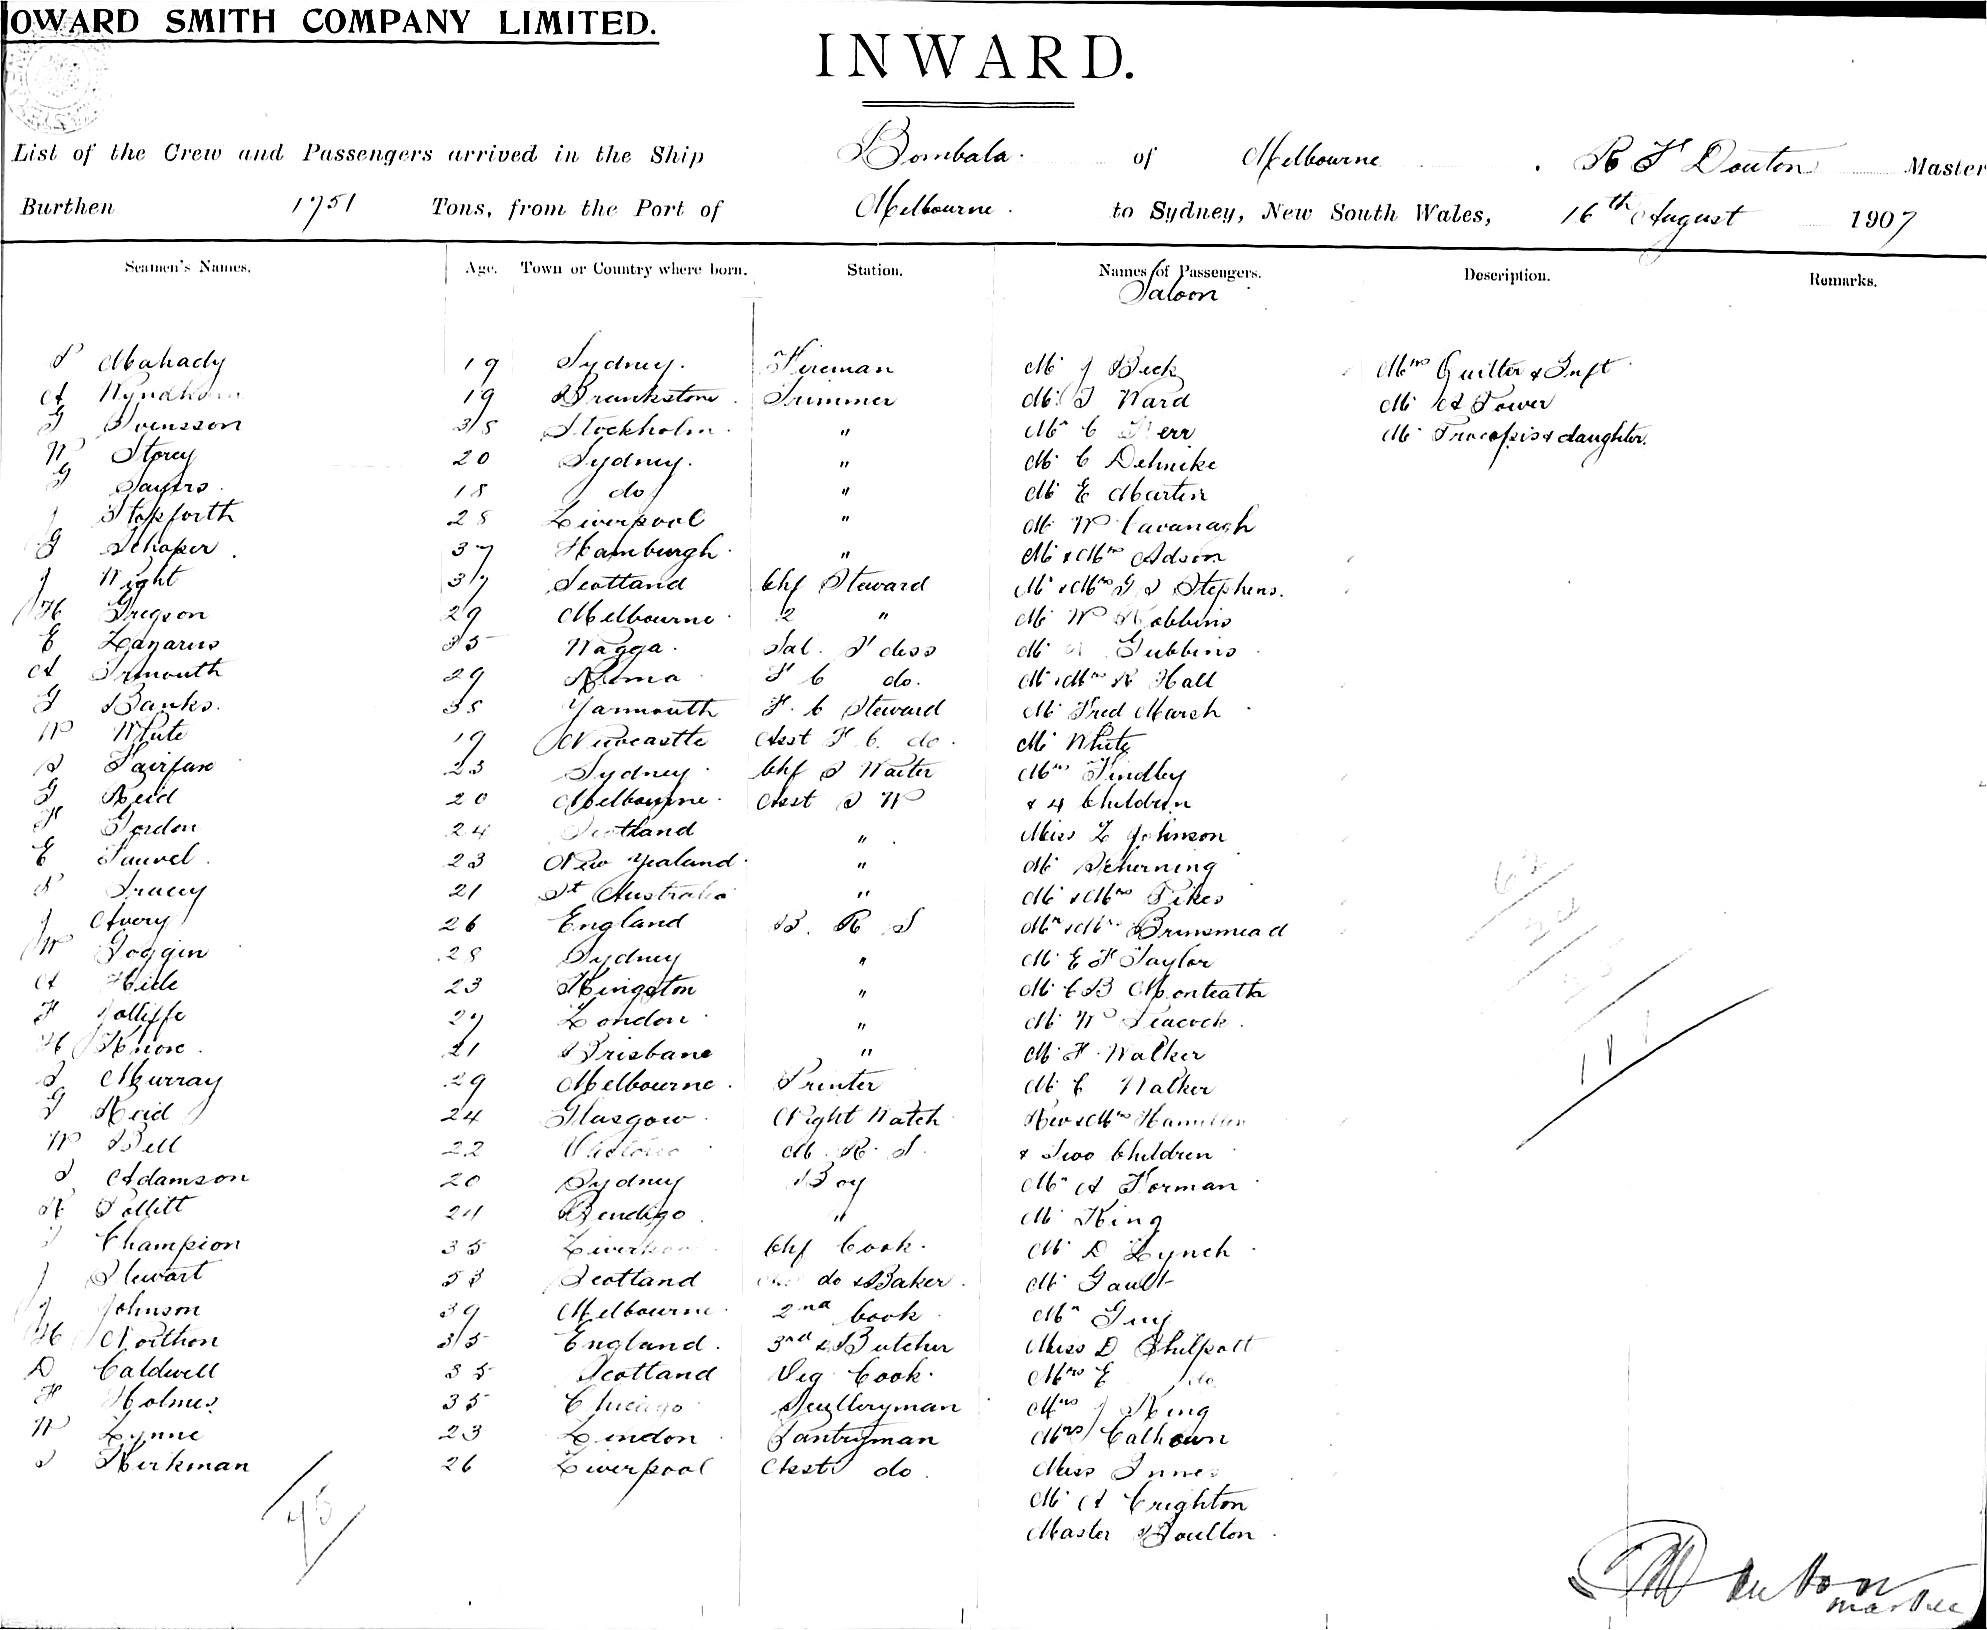 OWARD SMITH COMPANY LIMITED.
INWARD.
List of the Crew and Passengers arrived in the Ship Bombala of Melbourne. R F Douton Master
Burthen 1751 Tons, from the Port of Melbourne. to Sydney, New South Wales, 16th August 1907
Seamen's Names. Age. Town or Country where born. Station. Names of Passengers. Description. Remarks.
Saloon
Mahady 19 Sydney. Fireman Mr J Beck Mrs Quilter & Inft
A 19 Brankstone Trimmer Mr T Ward Mr A Power
Svensson 38 Stockholm " Mr C Kerr Mr Procopis & daughter
W Storey 20 Sydney. " Mr C Dehnike
G Sayers. 18 do " Mr E Martin
Stopforth 28 Liverpool " Mr W Cavanagh
G Schaper 37 Hamburgh " Mr & Mrs Adson
J Wight 37 Scotland Chf Steward Mr & Mrs G S Stephens.
H Gregson 29 Melbourne 2 " Mr W Robbins
E Lazarus 35 Wagga. Sal. S'dess Mr Gubbins
A Irmouth 29 F C do. Mr & Mrs R Hall
G Banks. 38 Yarmouth F. C Steward Mr Fred Marsh
W White 19 Newcastle Asst F C. do. Mr White
S Fairfax 23 Sydney Chf S Waiter Mrs Findley
G Reid 20 Melbourne. Asst S W & 4 Children
F Gordon 24 Scotland " Miss L Johnson
E 23 New Zealand " Mr Scherning
Tracey 21 St Australia " Mr & Mrs Pikes
J Avery 26 England B. R S Mr & Mrs Brinsmead
W Goggin 28 Sydney " Mr E F Taylor
A Hide 23 Kingston " Mr C B Monteath
F Jolliffe 27 London " Mr W Peacock.
H Knox. 21 Brisbane " Mr F. Walker
S Murray 29 Melbourne. Printer Mr C Walker
G Reid 24 Glasgow Night Watch Rev & Mrs Hamilton
W Bell 22 Victoria M. R. S. & Two Children
S Adamson 20 Sydney Boy Mr A Forman
R Pollitt 24 Bendigo " Mr King
Champion 35 Liverpool Chf Cook. Mr D Lynch
J Stewart 53 Scotland do & Baker. Mr Gault
J Johnson 39 Melbourne 2nd Cook Mr Guy
H Northon 35 England. 3rd & Butcher Miss D Philpott
D Caldwell 35 Scotland Veg Cook. Mrs E do
F Holmes 35 Chicago Sculleryman Mrs J King
W Lynne 23 London Pantryman Mrs Calhoun
S Kirkman 26 Liverpool Asst do. Miss Innes
Mr A Crighton
Master Boulton
Douton
master